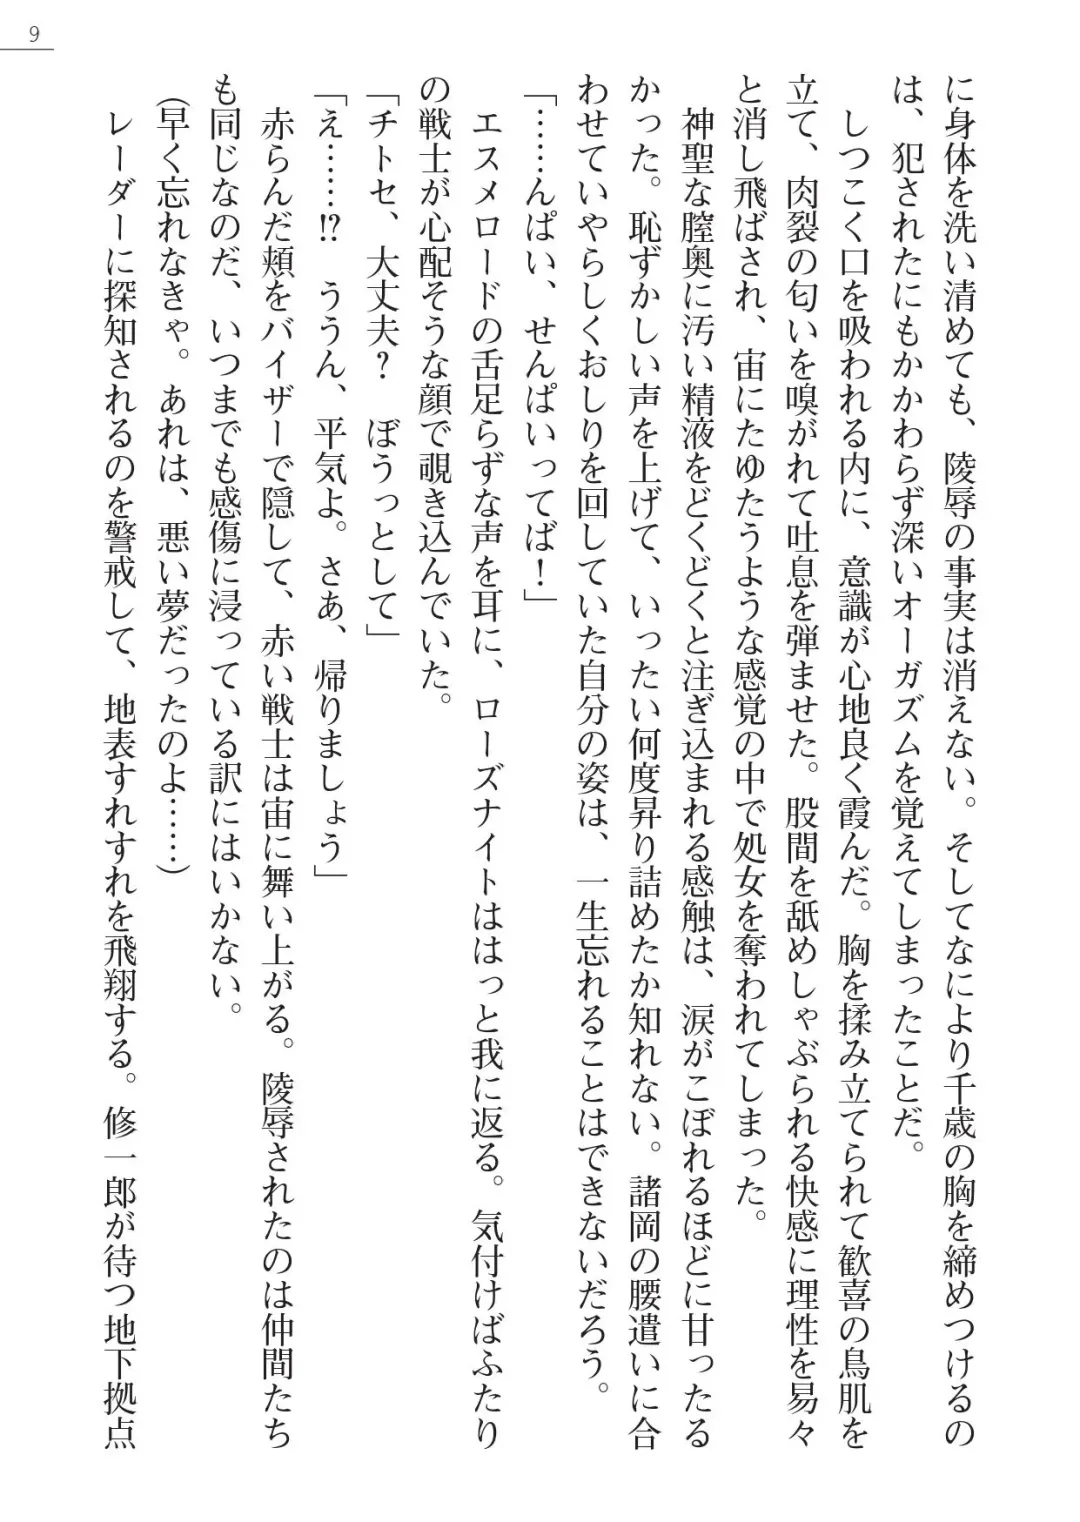 9
に身体を洗い清めても、陵辱の事実は消えない。そしてなにより千歳の胸を締めつけるの
は、犯されたにもかかわらず深いオーガズムを覚えてしまったことだ。
しつこく口を吸われる内に、意識が心地良く霞んだ。胸を揉み立てられて歓喜の鳥肌を
立て、肉裂の匂いを嗅がれて吐息を弾ませた。股間を舐めしゃぶられる快感に理性を易々
と消し飛ばされ、宙にたゆたうような感覚の中で処女を奪われてしまった。
神聖な膣奥に汚い精液をどくどくと注ぎ込まれる感触は、涙がこぼれるほどに甘ったる
かった。恥ずかしい声を上げて、いったい何度昇り詰めたか知れない。諸岡の腰遣いに合
わせていやらしくおしりを回していた自分の姿は、一生忘れることはできないだろう。
「……んぱい、せんぱいってば！」
エスメロードの舌足らずな声を耳に、ローズナイトははっと我に返る。気付けばふたり
の戦士が心配そうな顔で覗き込んでいた。
「チトセ、大丈夫？　ぼうっとして」
「え……!?　ううん、平気よ。さあ、帰りましょう」
赤らんだ頬をバイザーで隠して、赤い戦士は宙に舞い上がる。陵辱されたのは仲間たち
も同じなのだ、いつまでも感傷に浸っている訳にはいかない。
（早く忘れなきゃ。あれは、悪い夢だったのよ……）
レーダーに探知されるのを警戒して、地表すれすれを飛翔する。修一郎が待つ地下拠点